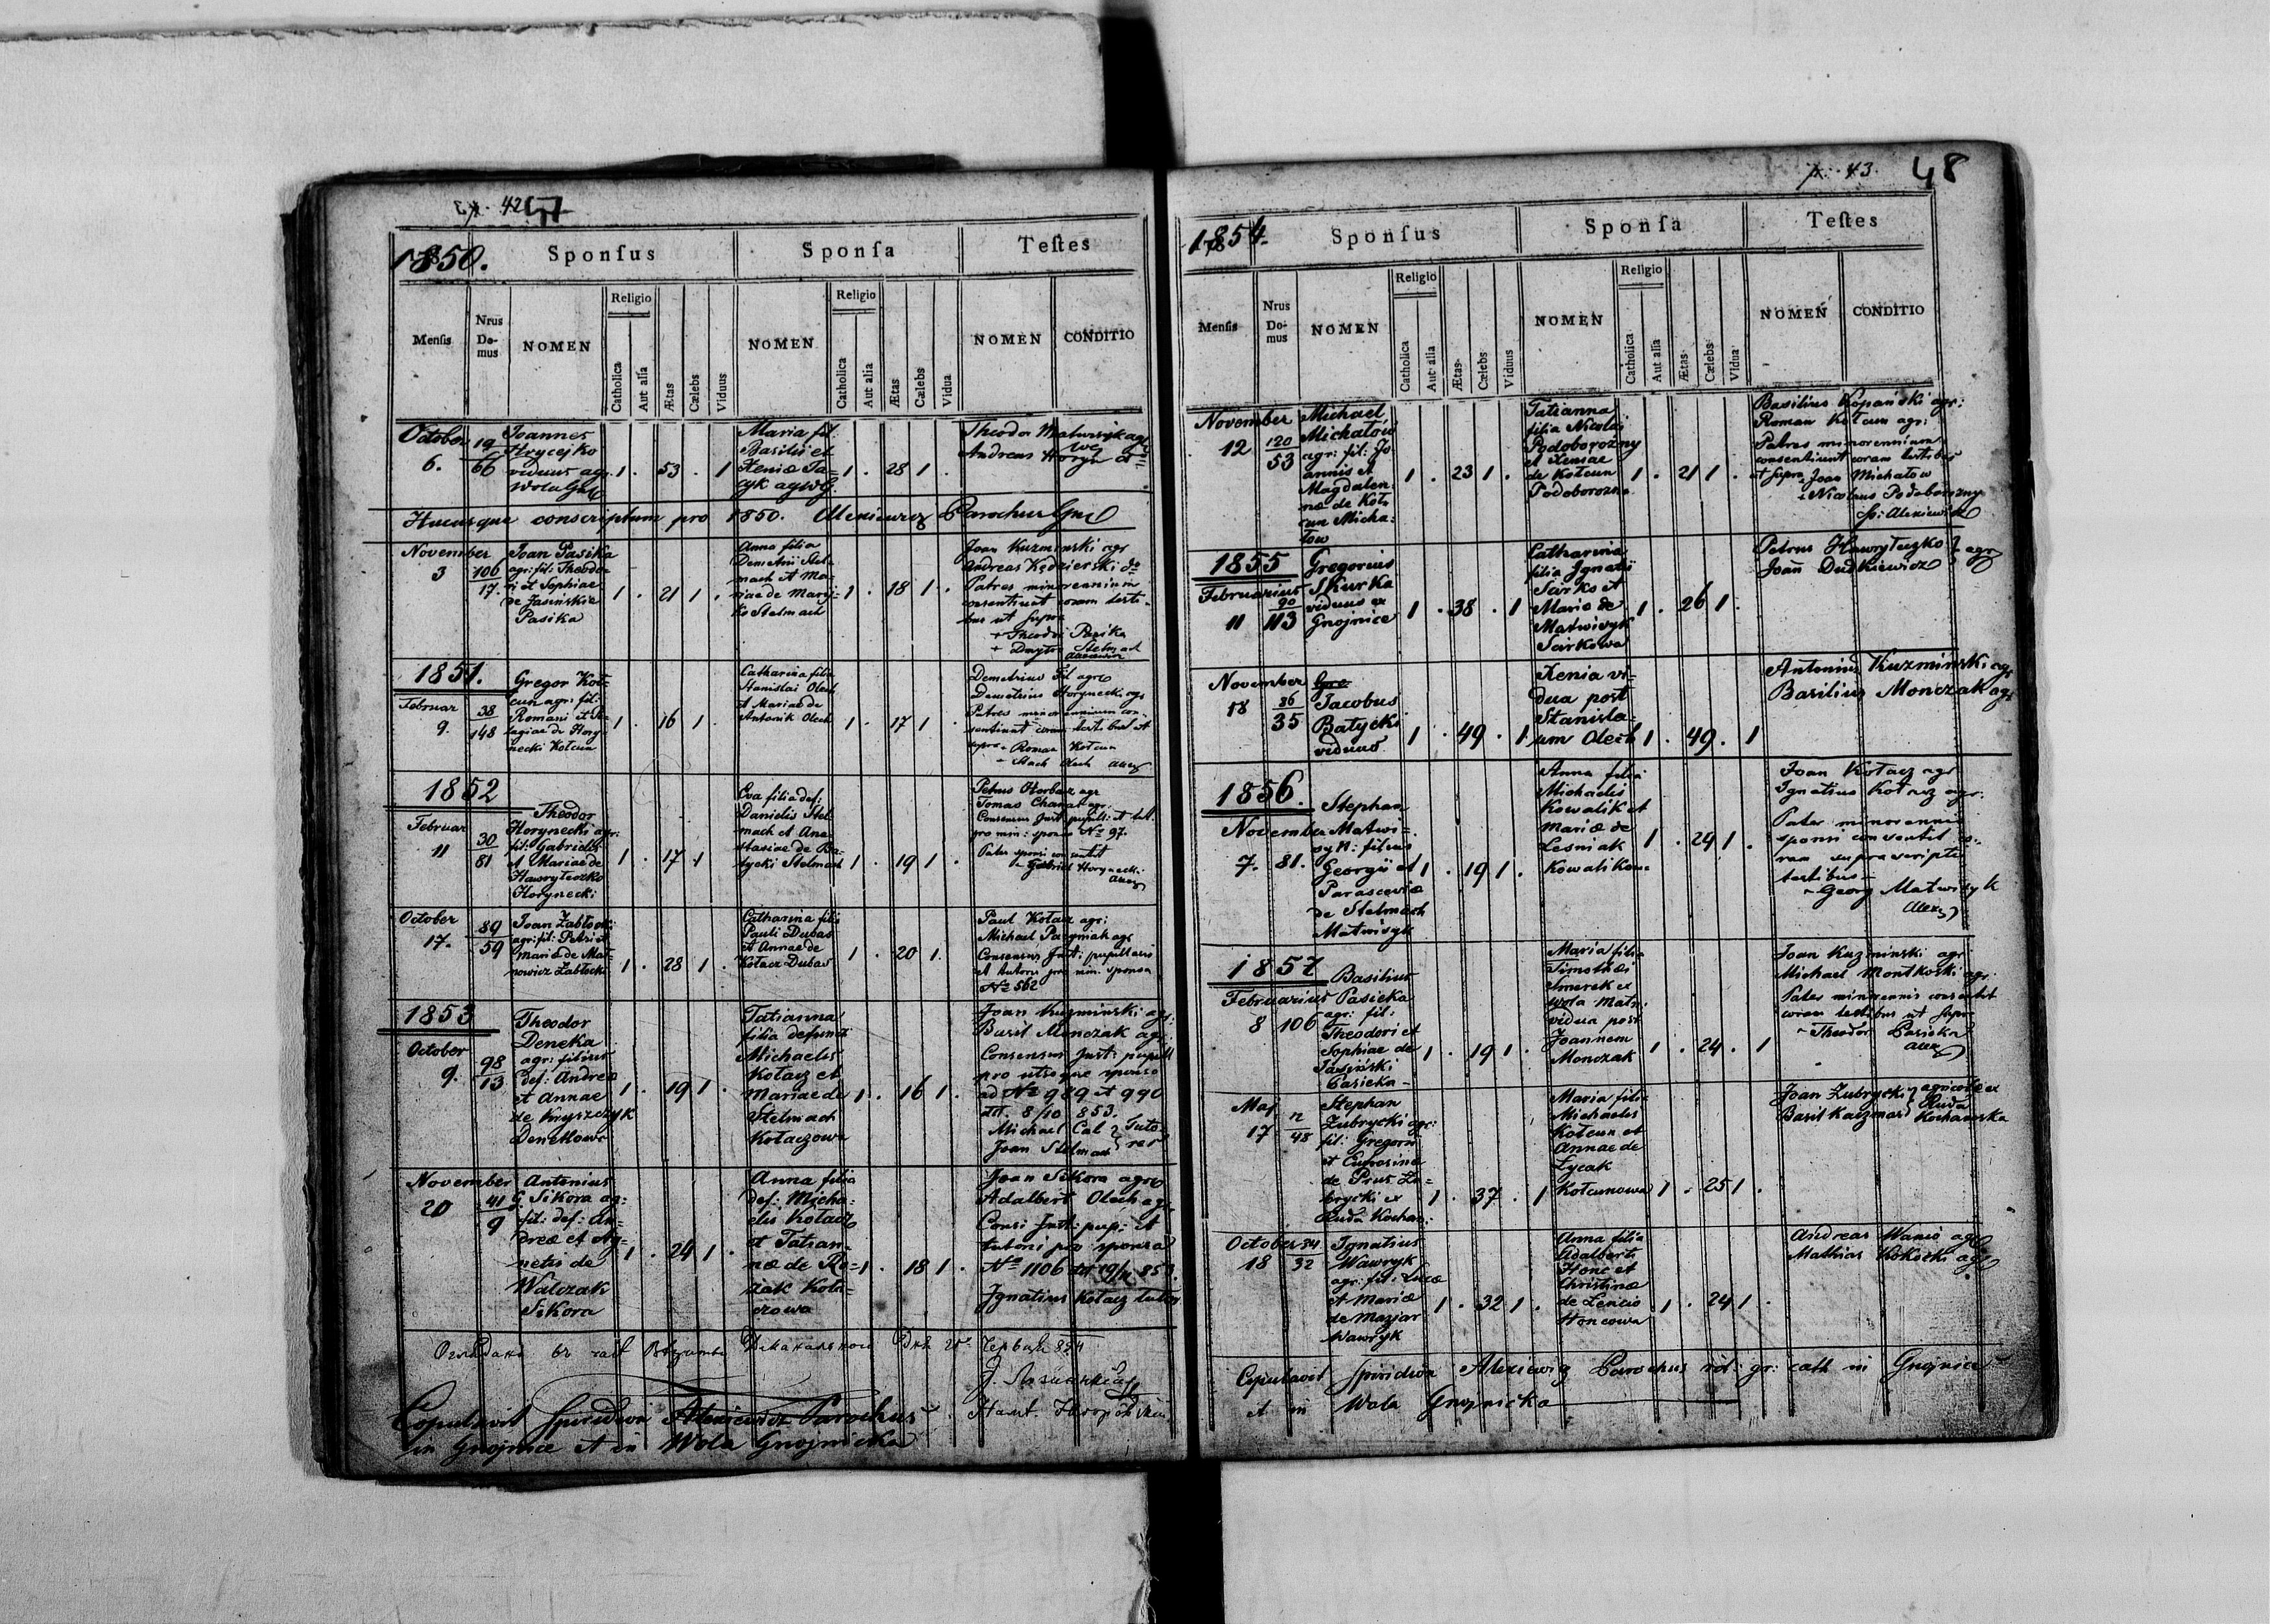 42 47
1850.
Sponſus
Sponſa
Teſtes
Menſis
Nrus Do-mus
NOMEN
Religio
Catholica
Aut alia
Ætas
Cælebs
Viduus
NOMEN
Religio
Catholica
Aut alia
Ætas
Cælebs
Vidua
NOMEN
CONDITIO
October
6.
19
66
Joannes
Hrycejko
viduus agr.
1 . 53 . 1
Maria fil.
Basilii et
Xeniæ Ja-
cyk
1 . 28 1 .
Theodor
Andreas
Hucusque conscriptum pro 1850. Alexiewicz Parochus
November
3
106
17.
Joan Pasika
agr: fil: Theodo-
ri et Sophiae
de Jasinskie
Pasika
1 . 21 1 .
Anna filia
Demetrii Stel-
mach et Ma-
riae de Mary-
ko Stelmach
1 . 18 1 .
Joan Kuzminski agr
Andreas Kędzierski do
Patres minorennium
consentiunt coram testi-
bus ut supra
+ Theodor Pasika
+ Stelmach
1851.
Februar
9.
38
148
Gregor Koł-
cun agr: fil:
Romani et Pe-
lagiae de Hory-
necki Kołcun
1 . 16 1 .
Catharina filia
Stanislai Olech
et Mariae de
Antonik Olech
1 . 17 1 .
Demetrius Fil agr
Demetrius Horynecki agr
Patres minorennium con-
sentiunt coram testibus ut
supra + Roman Kołcun
+ Stach Olech
1852
Februar
11
30
81
Theodor
Horynecki agr:
fil: Gabrielis
et Mariae de
Hawryleczko
Horynecki
1 . 17 1
Eva filia def:
Danielis Stel-
mach et Ana-
stasiae de Ba-
tycki Stelmach
1 . 19 1 .
Petrus Horbacz agr
Tomas Chanas agr.
Consensus Inst. pupill: et tut.
pro min: sponsa No 97.
Pater sponsi consentit
+ Gabriel Horynecki
October
17.
89
59
Joan Zabłocki
agr: fil: Petri et
Mariæ de Ma-
nowicz Zabłocki
1 . 28 1 .
Catharina filia
Pauli Dubas
et Annae de
Kołacz Dubas
1 . 20 1.
Paul Kołacz agr:
Michael agr
Consensus Inst: pupillaris
et tutoris pro min. sponsa
No 562
1853
October
9.
98
13
Theodor
Deneka
agr: filius
def: Andreæ
et Annae
de Kryszczyk
1 . 19 1 .
Tatianna
filia defuncti
Michaelis
Kołacz et
Mariae de
Stelmach
Kołaczowa
1 . 16 1 .
Joan Kuzminski agr:
Basil Monczak agr:
Consensus Inst: pupill
pro utroque sponso
ad No 989 et 990
8/10 853.
Michael Cal } Tuto-
Joan Stelmach } res
November
20
41
9
Antonius
Sikora ag:
fil: def: An-
dreæ et Ag-
netis de
Walczak
Sikora
1 . 24 1 .
Anna filia
def: Micha-
elis Kołacz
et Tatian-
næ de Ro-
żak Koła-
czowa
1 . 18 1 .
Joan Sikora agr
Adalbert Olech agr
Consi Inst: pup: et
tutoris pro sponsa
No 1106 19/11 853.
Ignatius Kołacz tutor
Copulavit Spiridion Alexiewicz Parochus
in Gnojnice et in Wola Gnojnicka
43. 48
1854.
Sponſus
Sponſa
Teſtes
Menſis
Nrus Do-mus
NOMEN
Religio
Catholica
Aut alia
Ætas
Cælebs
Viduus
NOMEN
Religio
Catholica
Aut alia
Ætas
Cælebs
Vidua
NOMEN
CONDITIO
November
12
120
53
Michael
Michałow
agr: fil: Jo
annis et
Magdalen-
næ de Koł-
cun Micha:
łow
1 . 23 1 .
Tatianna
filia Nicolai
Podoborozny
et Xeniae
de Kołcun
Podoborozna
1 . 21 1 .
Basilius Kopanski agr:
Roman Kołcun agr:
Patres minorennium
consentiunt coram testibus
ut supra + Joan Michałow
+ Nicolaus Podoborozny
Sp: Alexiewicz
1855
Februarius
11
90
113
Gregorius
Skurka
viduus ex
Gnojnice
1 . 38 . 1
Catharina
filia Ignatii
Sarko et
Mariæ de
Matwisyk
Sarkowa
1 . 26 1 .
Petrus Hawryleczko } agr
Joan Dudkiewicz }
November
18
86
35
Jacobus
Batycki
viduus
1 . 49 . 1
Xenia vi-
dua post
Stanisla-
um Olech
1 . 49 . 1
Antonius Kuzminski agr
Basilius Monczak agr
1856.
November
7. 81.
Stephan
Matwi-
syk: filius
Georgii et
Parasceviæ
de Stelmach
Matwisyk
1 . 19 1 .
Anna filia
Michaelis
Kowalik et
Mariæ de
Lesniak
Kowalikow-
1 . 24 1 .
Joan Kołacz agr
Ignatius Kołacz agr:
Pater minorennis
sponsi consentit co-
ram suprascriptis
testibus
+ Georg Matwisyk
1857
Februarius
8 106
Basilius
Pasieka
agr: fil:
Theodori et
Sophiae de
Jasiński
Pasieka
1 . 19 1 .
Maria filia
Timothei
Smerek ex
Wola
vidua post
Joannem
Monczak
1 . 24 . 1
Joan Kuzminski agr
Michael Montkoski agr.
Pater minorennis consentit
coram testibus ut supra
+ Theodor Pasieka
Maj
17
12
48
Stephan
Zubrycki agr:
fil: Gregorii
et Eufrosinæ
de Prus Zu-
brycki ex
Ruda Kochan:
1 . 37 . 1
Maria filia
Michaelis
Kołcun et
Annae de
Łycak
Kołcunowa
1 . 25 1 .
Joan Zubrycki } agricolæ ex
Basil Kaczmar } Ruda Kochanowska
October
18
34
32
Ignatius
Wawryk
agr: fil: Lucæ
et Mariæ
de Maziar
Wawryk
1 . 32 1 .
Anna filia
Adalberti
Honc et
Christinæ
de Lencio
Honcowa
1 . 24 1 .
Andreas Wanio agr
Mathias Kokocki agr
Copulavit Spiridion Alexiewicz Parochus rit: gr: cath in Gnojnice
et in Wola Gnojnicka